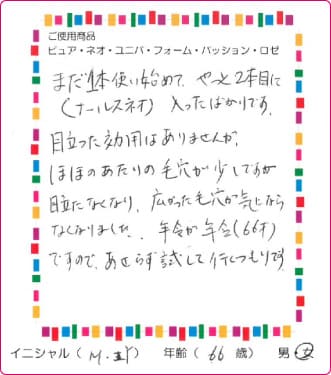 ご使用商品
ピュア・ネオ・ユニバ・フォーム・パッション・ロゼ
まだ1本使い始めて、やっと2本目に
(オールスネオ) 入ったばかりです。
目立った効用はありませんが、
ほほのあたりの毛穴が少しですが
目立たなくなり、広がった毛穴が気にならな
なくなりました。年令が年令(66才)
ですので、あせらず試して行くつもりです
イニシャル( M. ) 年齢( 66 歳) 男 女